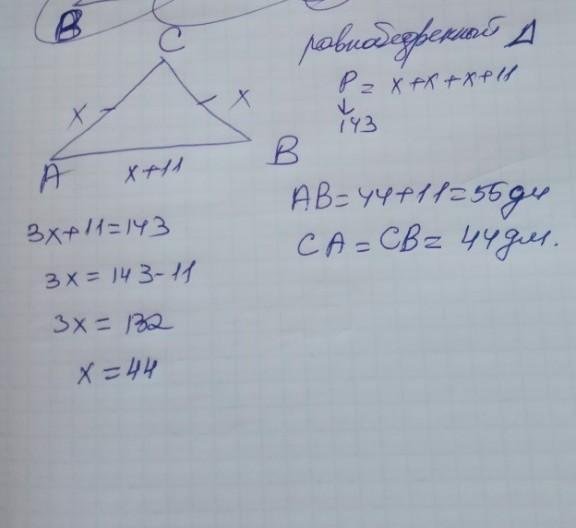 B
C
равнобедренный Δ
P = x+x+x+11
↓
143
x
x
A
x+11
B
AB=44+11=55дм
CA = CB = 44дм.
3x+11=143
3x = 143-11
3x = 132
x = 44